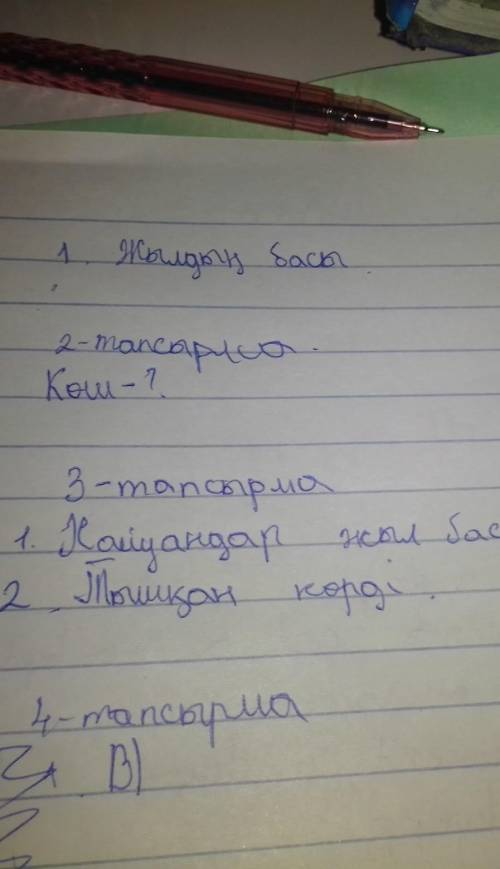 1. Жылдың басы
2-тапсырма.
Көш-?.
3-тапсырма
1. Хайуандар жыл бас
2. Тышқан көрді.
4-тапсырма
В)